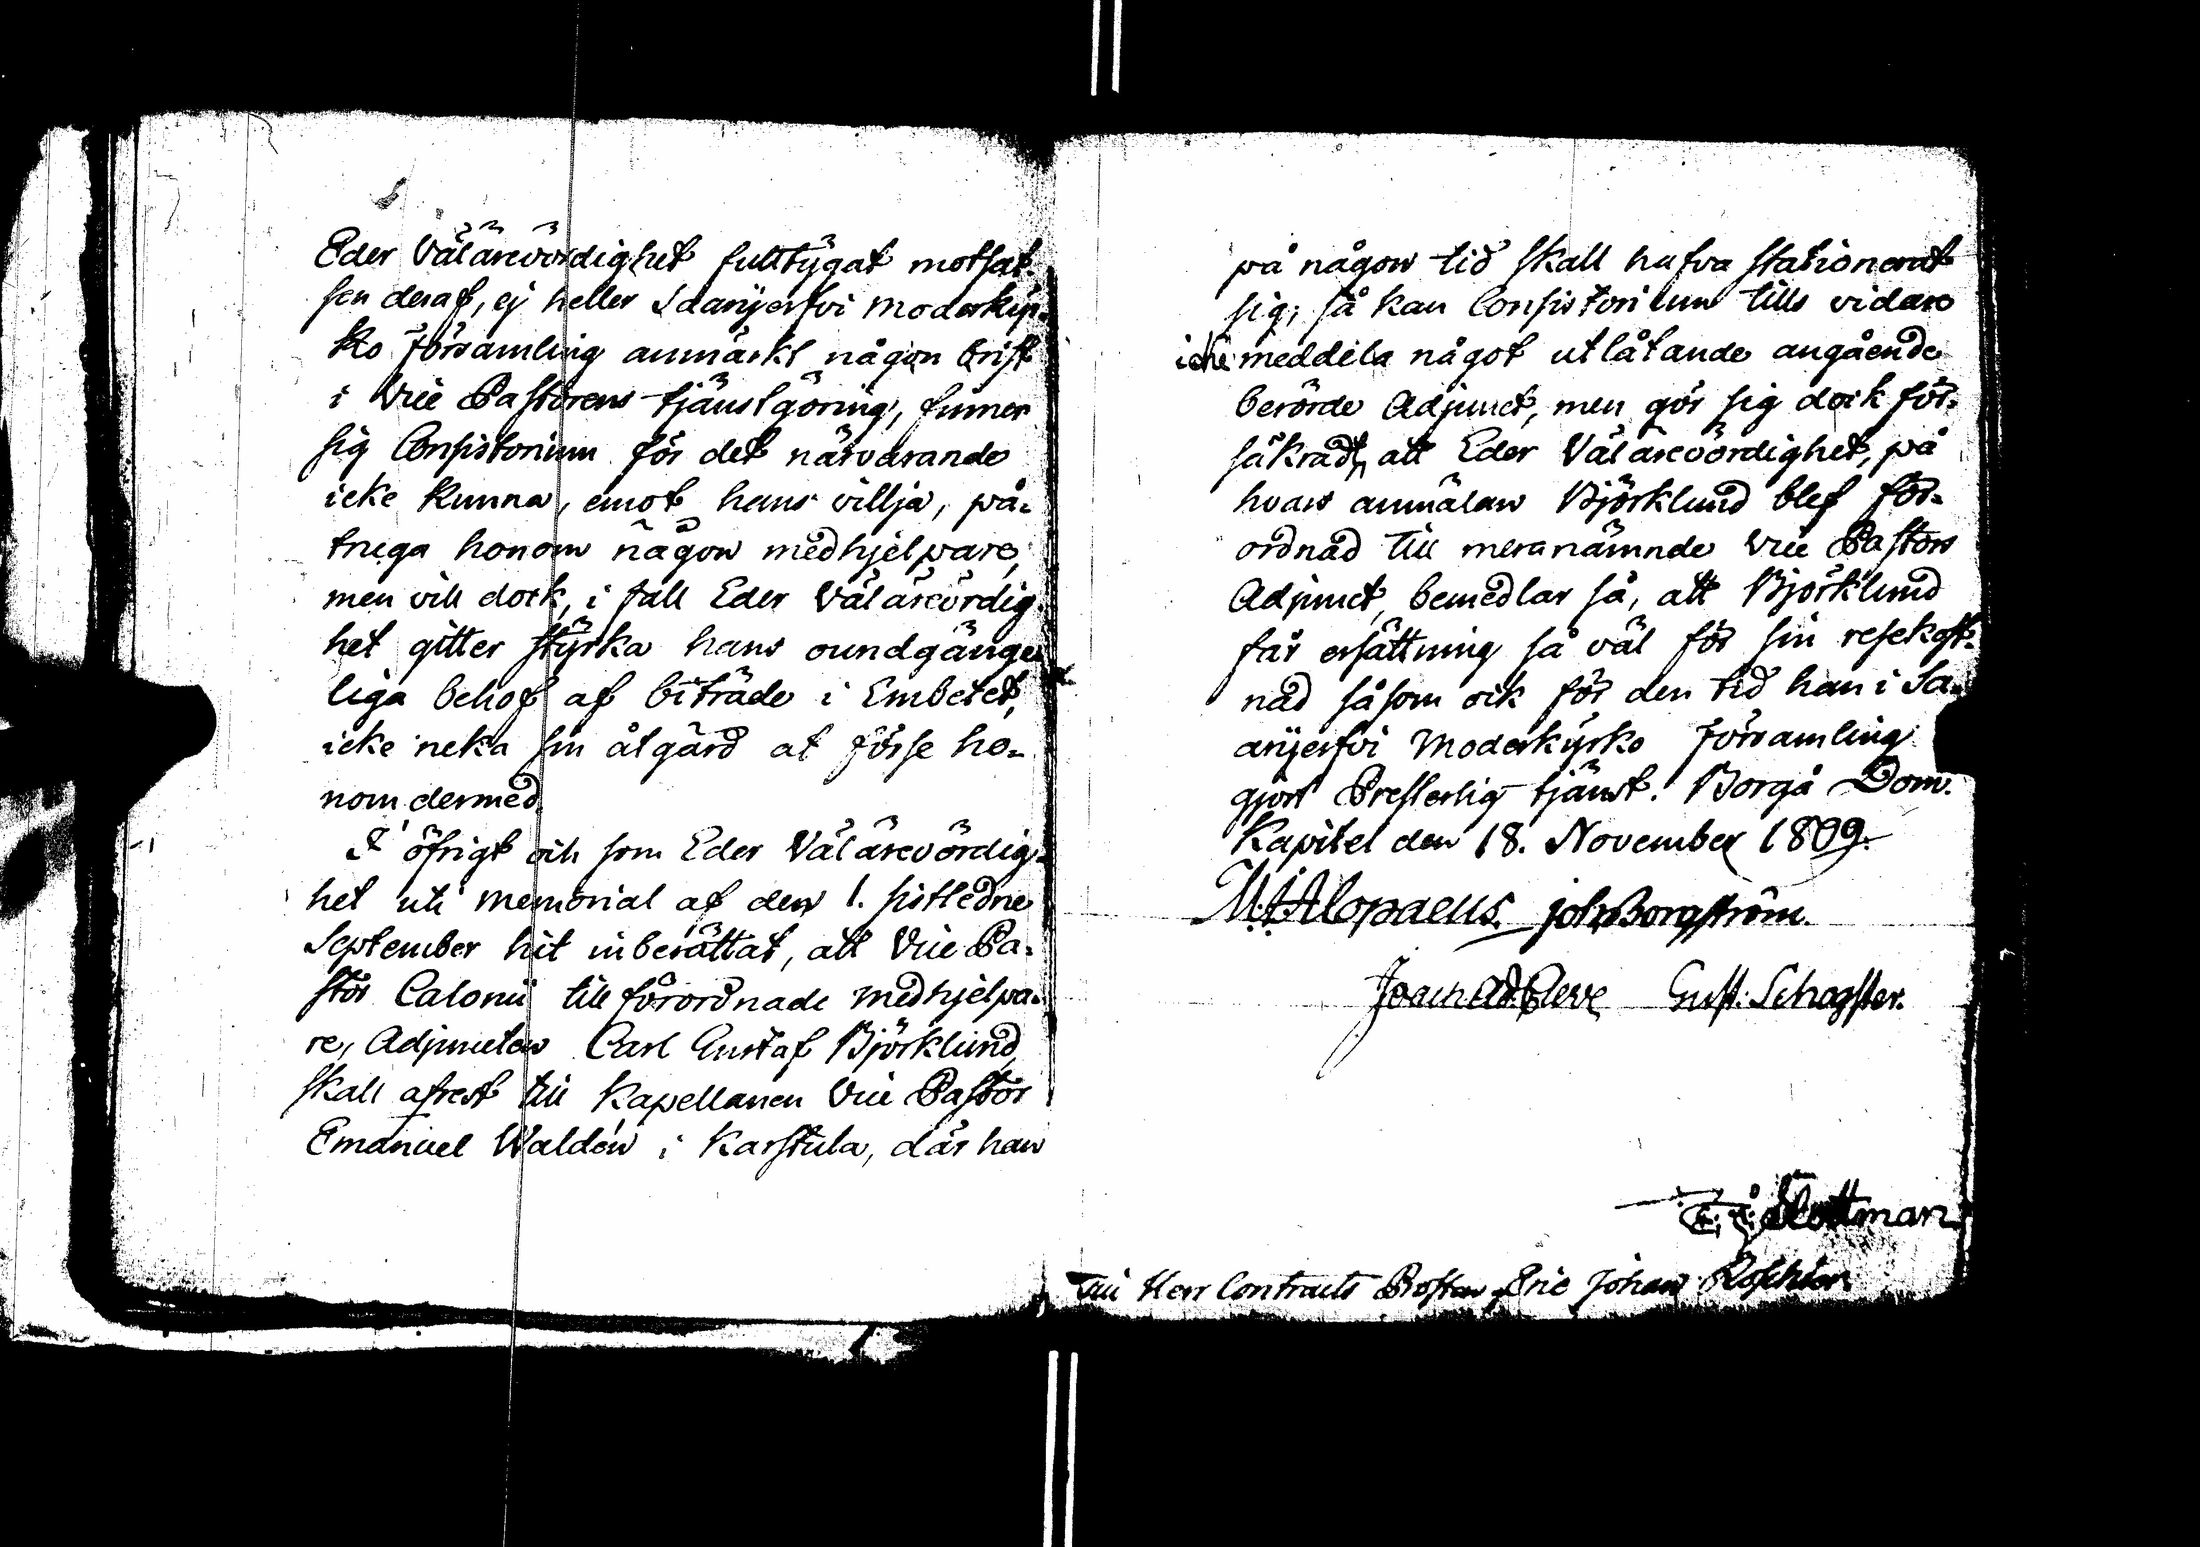 Eder Välärevördighet fulltÿgat motsat-
sen deraf, ej heller Idarijerfvi Moderkÿr-
ko Församling anmärkt någon brist
i Vice Pastorens tjänstgöring, finner
sig Consistorium för det närvarande
icke kunna, emot hans villja, på-
truga honom någon medhjelpare,
men vill dock, i fall Eder Välärevördig-
het gitter stÿrka hans oundgänge-
liga behof af biträde i Embetet,
icke neka sin åtgärd at förse ho-
nom dermed.
I öfrigt och som Eder Välärevördig-
het uti Memorial af den 1. sistledne
September hit inberättat, att Vice Pa-
stor Calonii tillförordnade medhjelpa-
re, Adjuncten Carl Gustaf Björklund,
skall afrest till Kapellanen Vice Pastor
Emanuel Waldén i Karstula, där han
på någon tid skall hafva stationerat
sig; så kan Consistorium tills vidare
icke meddela något utlåtande angående
berörde Adjunct, men gör sig dock för-
säkradt, att Eder Välärevördighet, på
hvars anmälan Björklund blef för-
ordnad till meranämnde Vice Pastors
Adjunct, bemedlar så, att Björklund
får ersättning så väl för sin resekost-
nad såsom ock för den tid han i Sa-
arijerfvi Moderkÿrko Församling
gjort Presterlig tjänst. Borgå Dom-
Kapitel den 18. November 1809.
M: Alopaeus. Joh: Borgström.
Joach. Ad. Cleve Gust: Schogster.
Slottman
Till Herr Contracts Prosten Eric Johan Roschier.